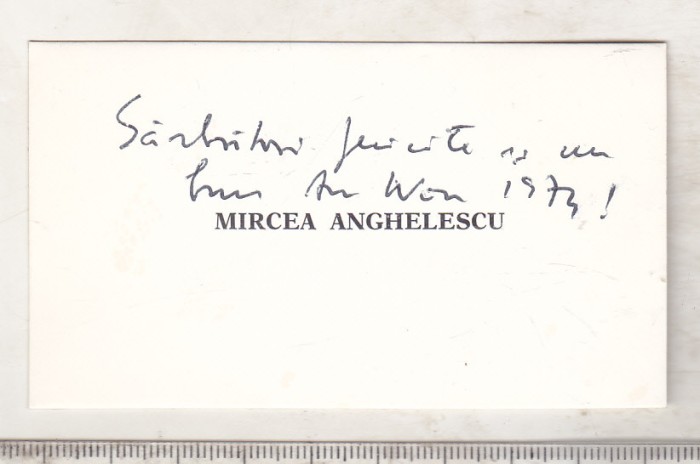 Sărbători fericite și un
bun An Nou 1974!
MIRCEA ANGHELESCU